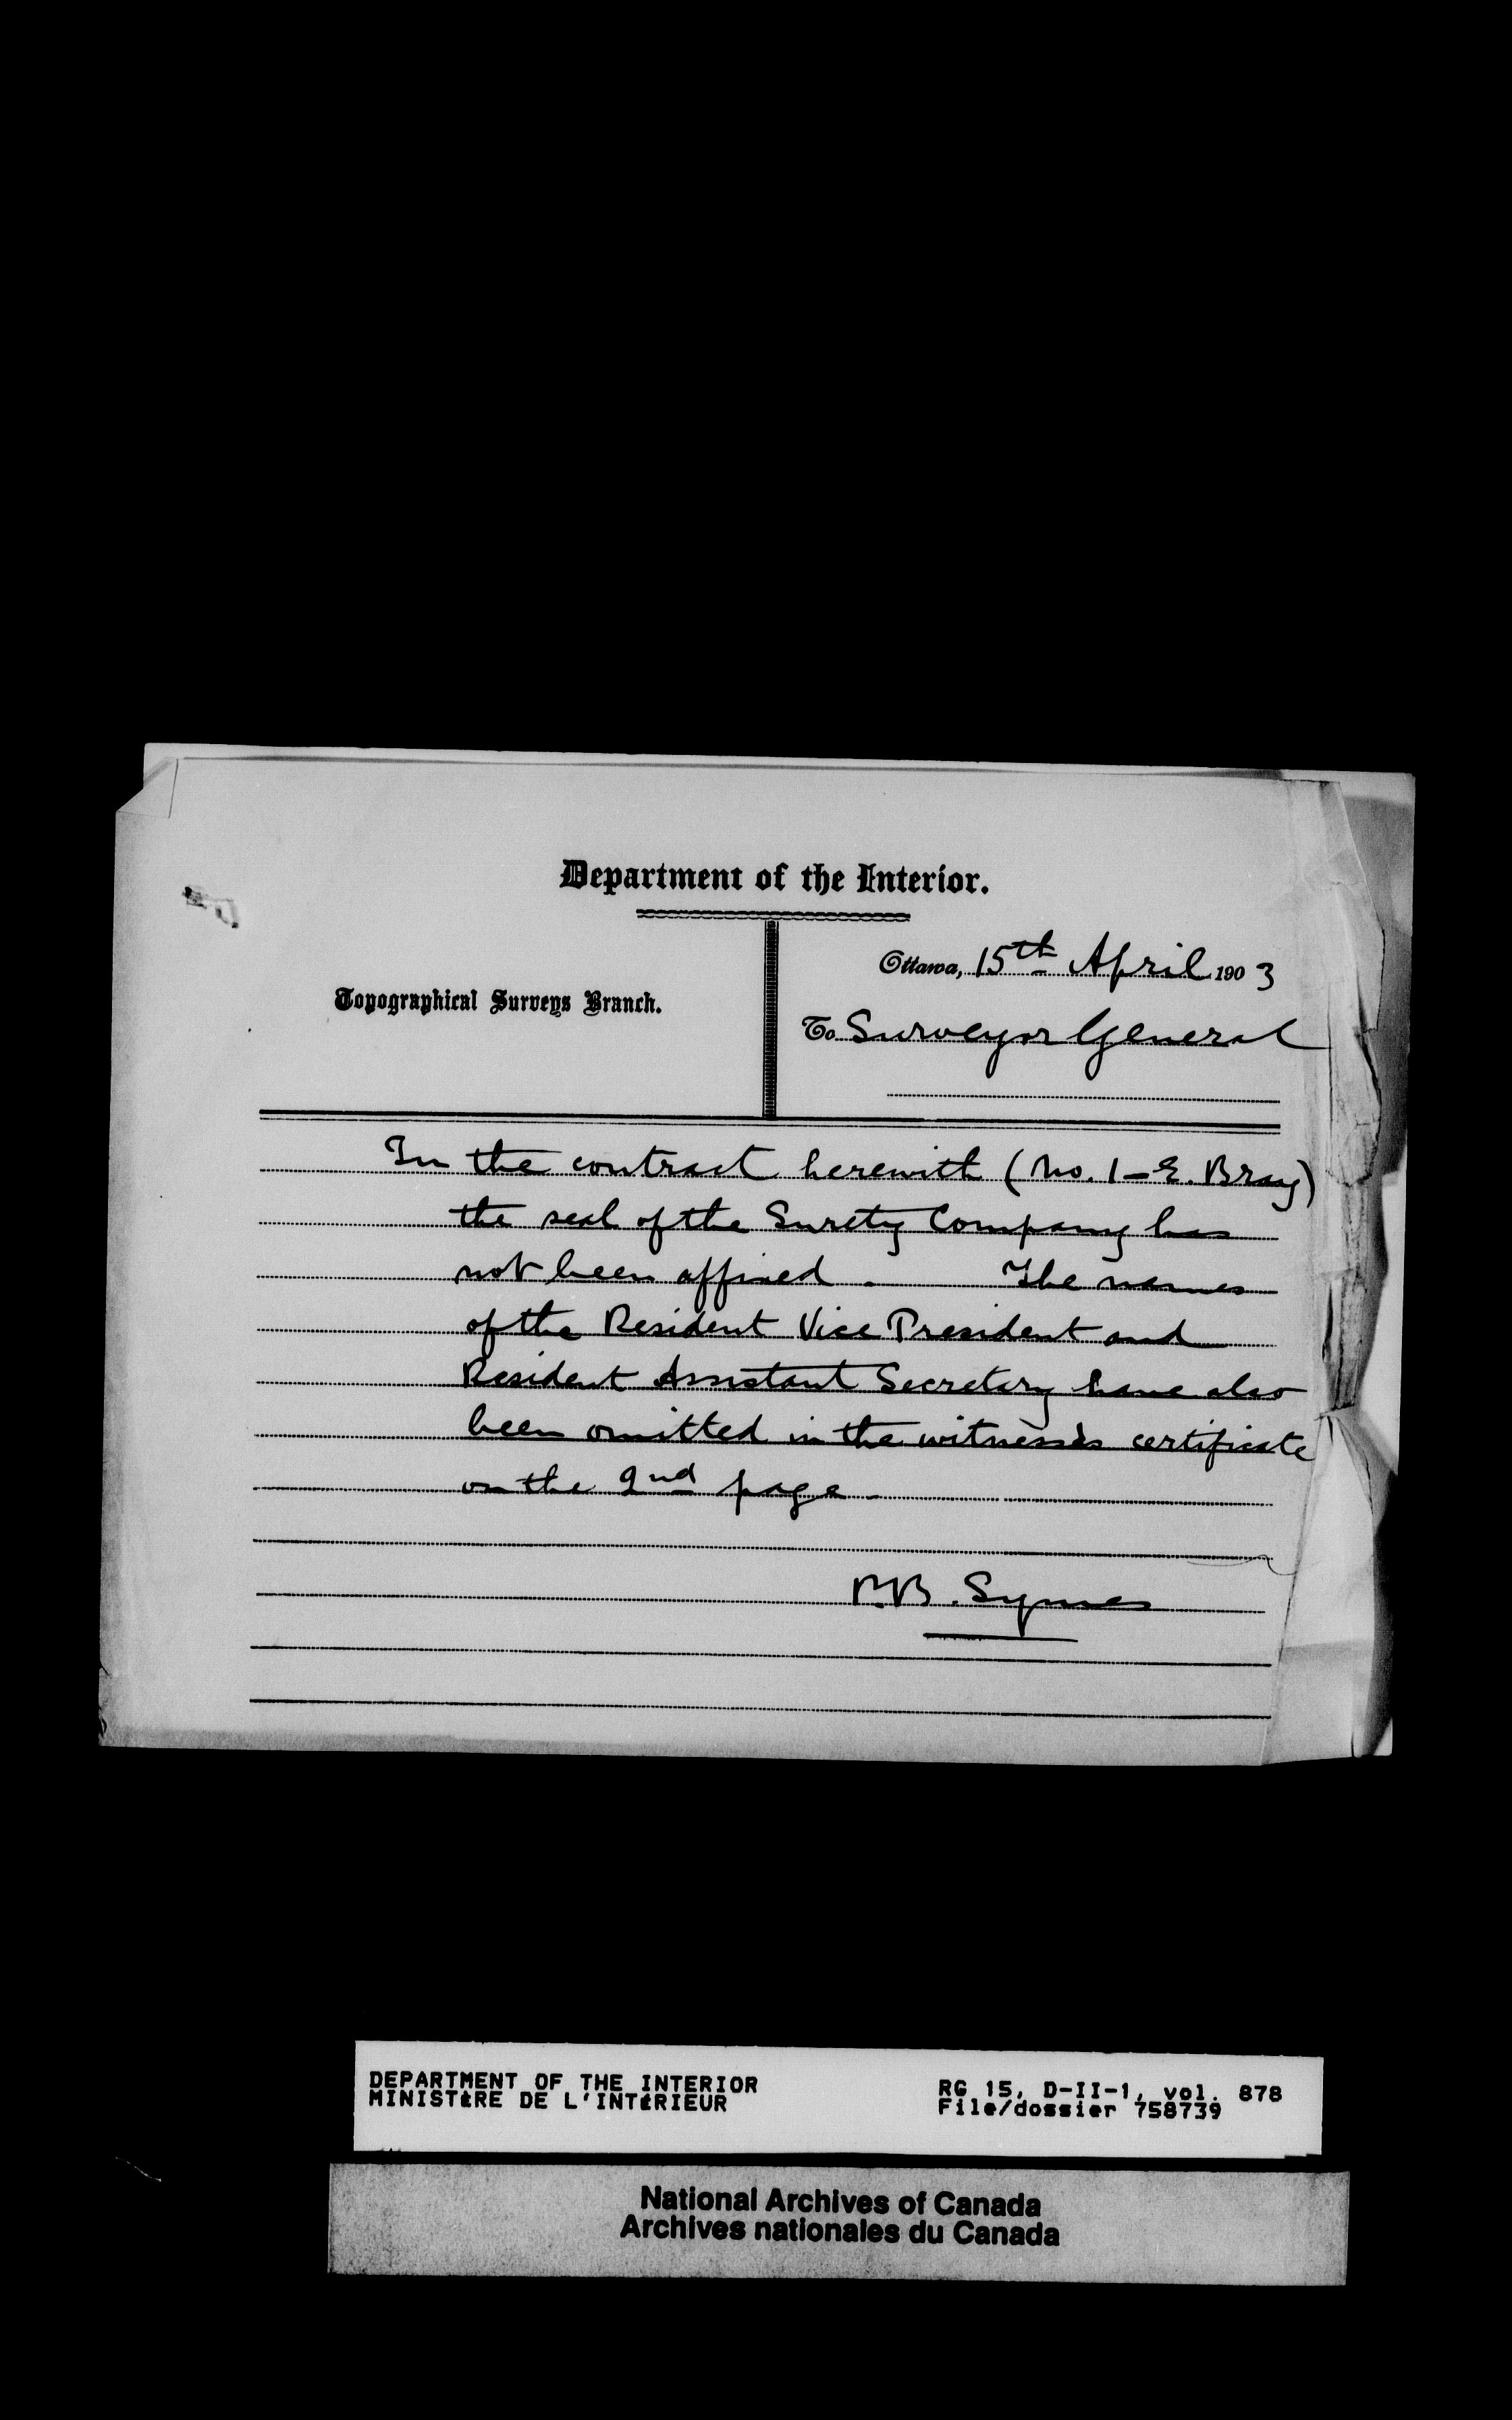 Department of the Interior.
Topographical Surveys Branch.
Ottawa, 15th April 1903
To Surveyor General
In the contract herewith (No. 1 – E. Bray)
the seal of the Surety Company has
not been affixed. The names
of the Resident Vice President and
Resident Assistant Secretary have also
been omitted in the witness's certificate
on the 2nd page.
P.B. Symes
DEPARTMENT OF THE INTERIOR
MINISTÈRE DE L'INTÉRIEUR
RG 15, D-II-1, vol. 878
File/dossier 758739
National Archives of Canada
Archives nationales du Canada